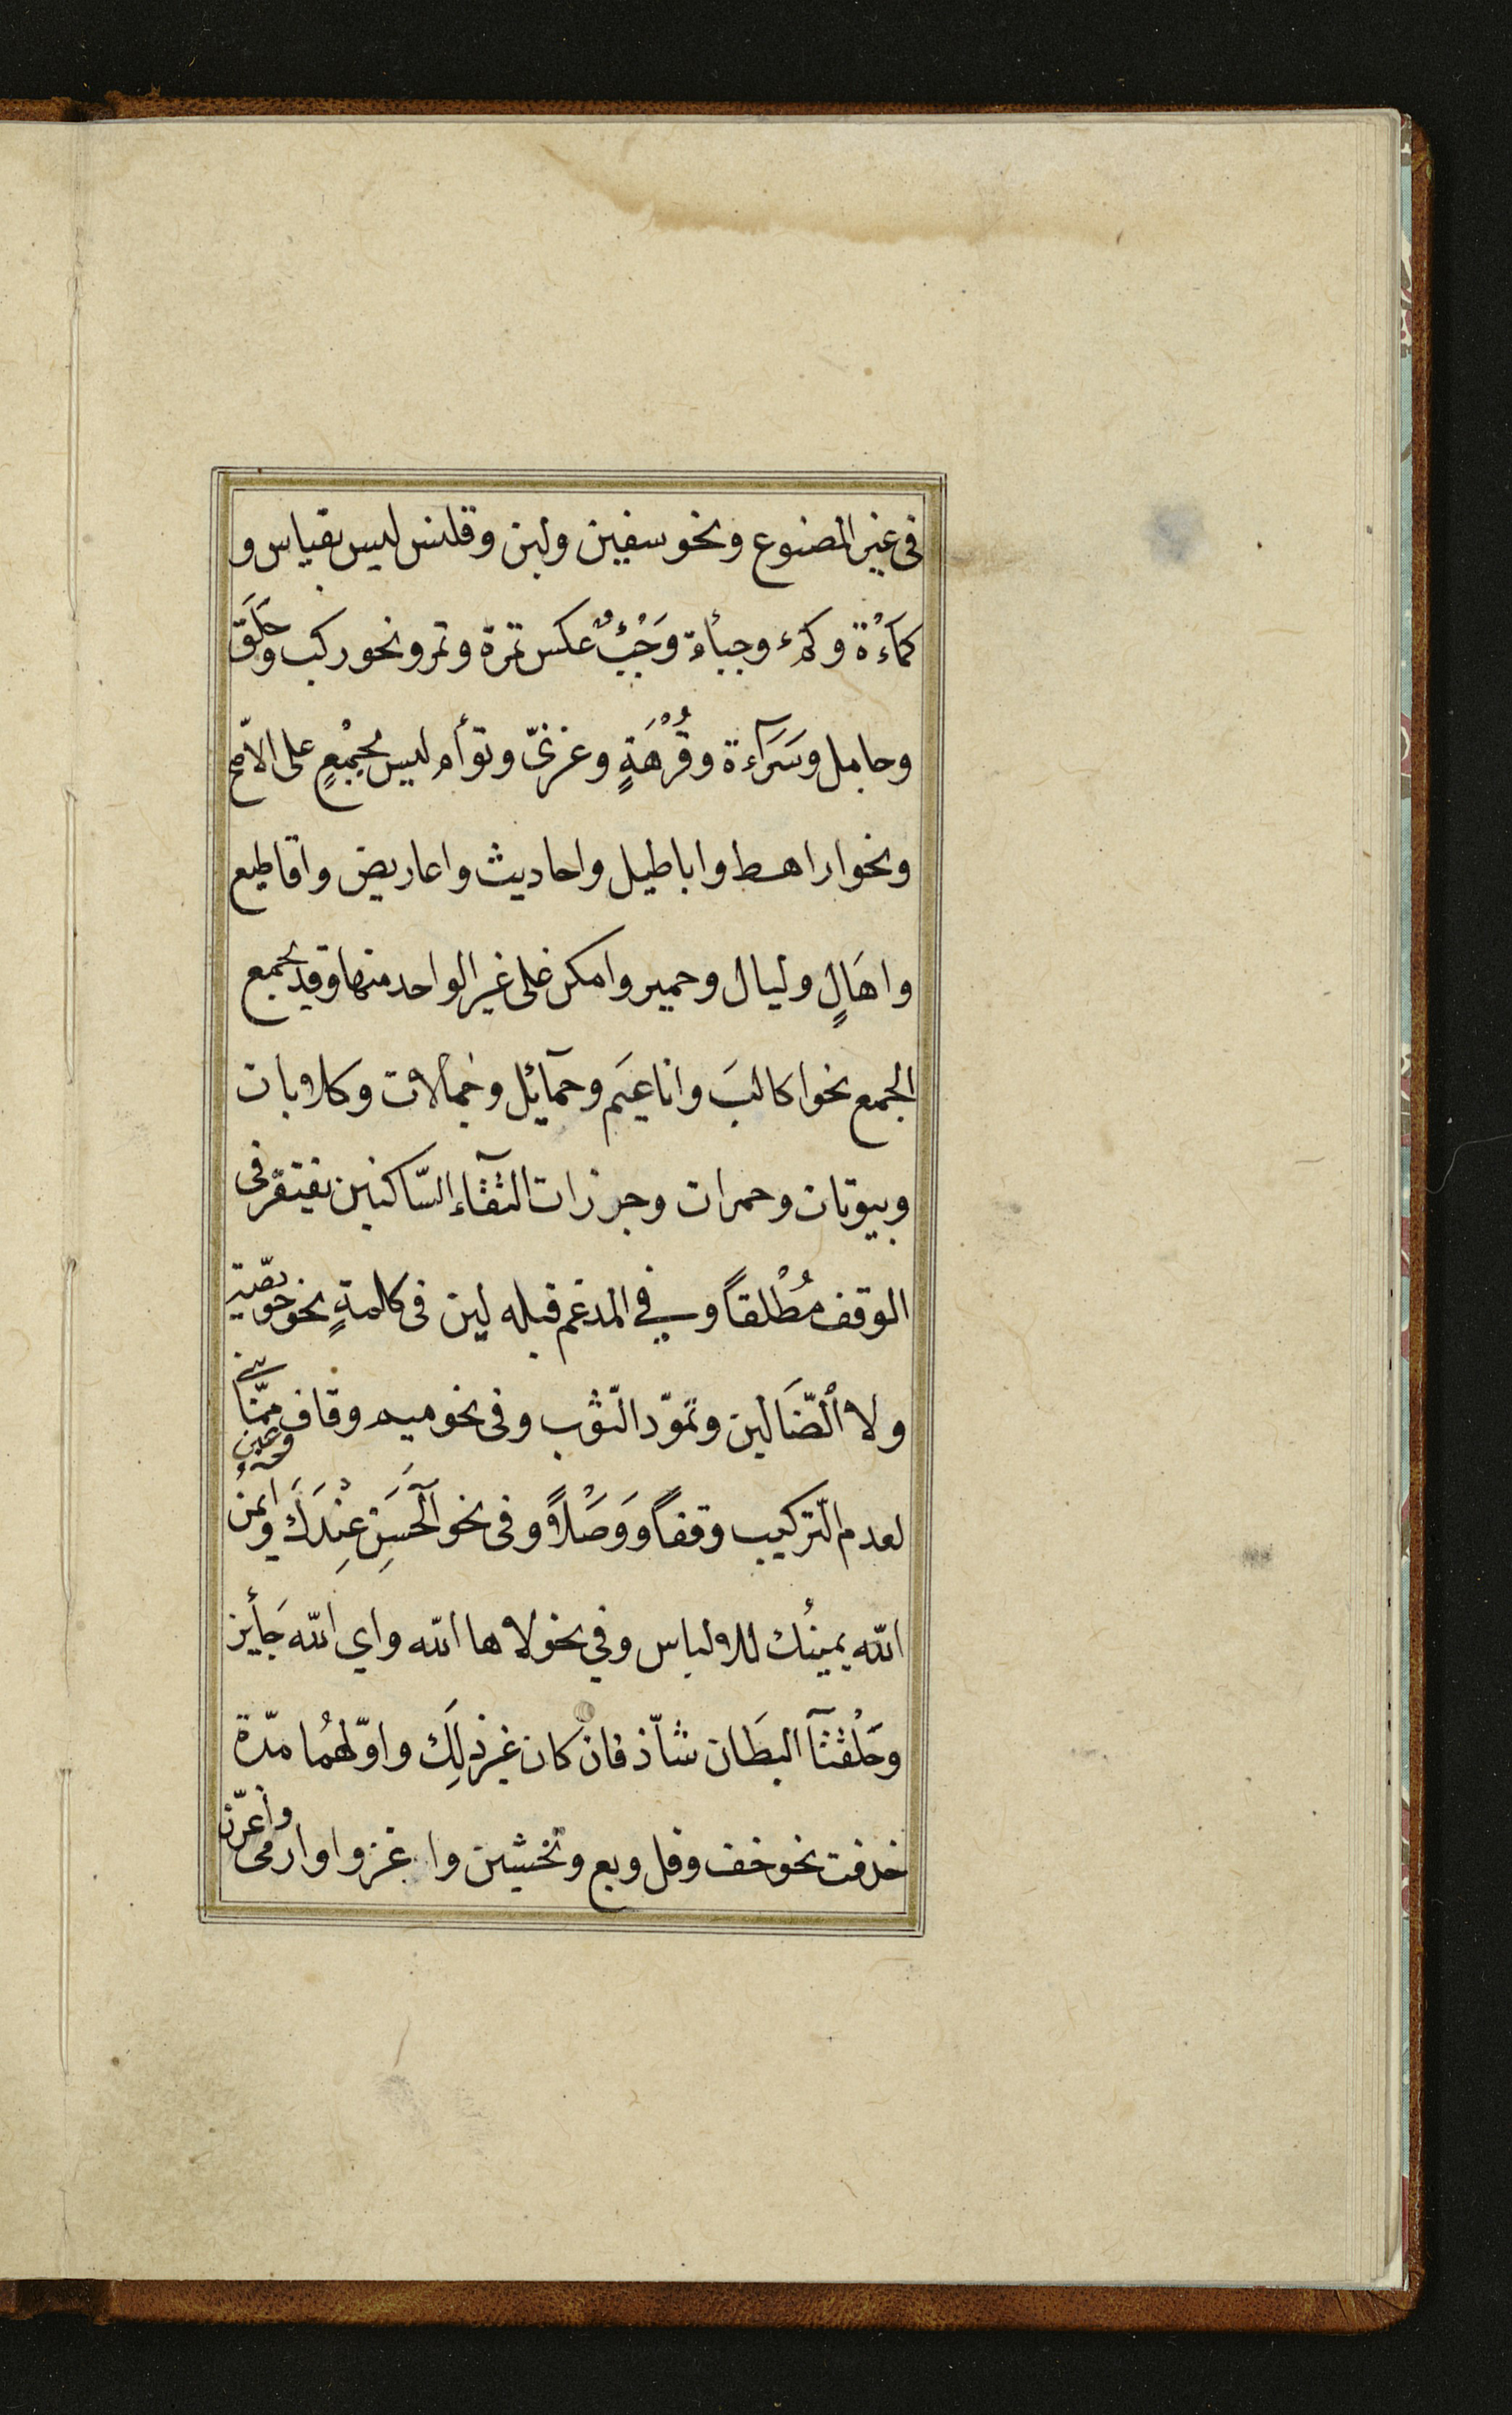 فى غير المصنوع ونحو سفين ولبن وقلنس ليس بقياس و
كمَاءْة وكمْء وجبأة وَجَبْءٌ عكس تمرة وتمر ونحو ركب وحَلَق
وحامل وسَرَآءة وفُرْهَةٍ وغزىّ وتوأم ليس بجمْعٍ على الاصّح
ونحو اراهط واباطيل واحاديث واعاريض واقاطيع
واهَالٍ وليال وحمير وامكن على غير الواحد منها وقد يجمع
الجمع نحو اكالبَ واناعيَم وحمآئل وجمالات وكلابات
وبيوتات وحمرات وجرزات التقآء الساّكنين يغتفر فى
الوقف مُطْلقاً وفي المدغم قبله لين فى كلمةٍ نحو خويصّة
ولا الضّاَلين وتموّد الثّوب وفى نحو ميم وقاف وعين ممّا بنى
لعدم التّركيب وقفاً وَوَصْلاً وفى نحو آلْحَسَن عِنْدَكَ وايمُن
الله يمينُك للالباس وفي نحو لاها الله واي الله جَائز
وحَلْقتآ البطَان شاّذ فان كان غير ذلِكَ واوّلهمُا مدّة
حذفت نحو خف وقل وبع وتخشين واغزوا وارمى واغزنّ